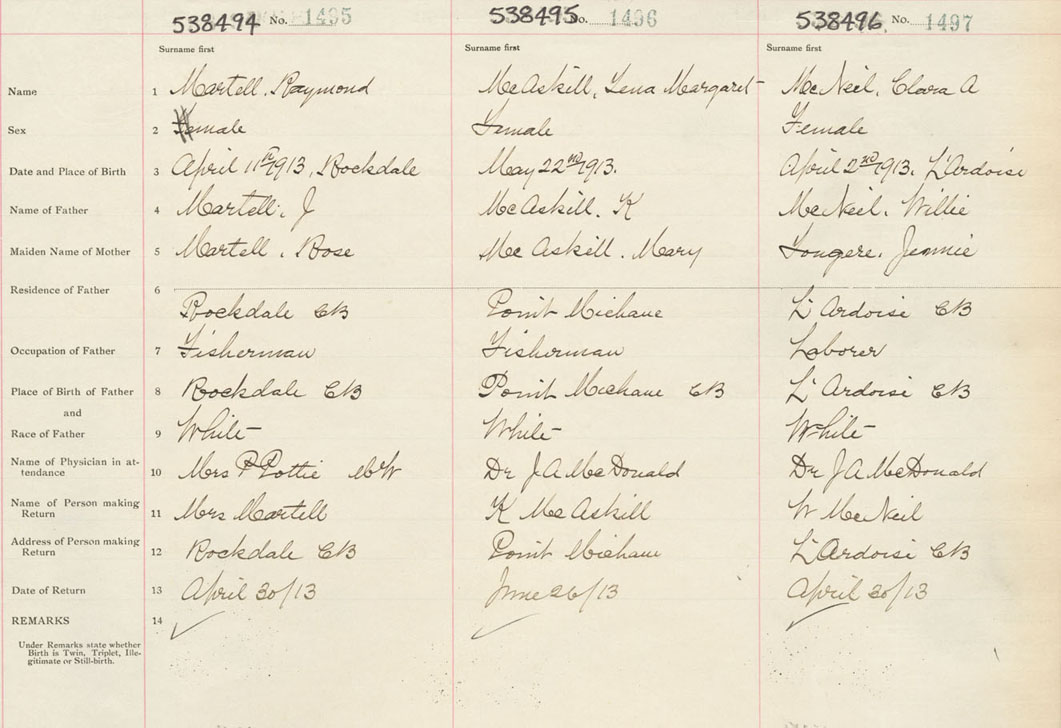 538494 No. 1495 538495 No. 1496 538496 No. 1497
Surname first Surname first Surname first
Name 1 Martell, Raymond McAskill, Lena Margaret McNeil, Clara A
Sex 2 Female Female Female
Date and Place of Birth 3 April 11th 1913, Rockdale May 22nd 1913. April 2nd 1913. L'Ardoise
Name of Father 4 Martell, J McAskill, K McNeil, Willie
Maiden Name of Mother 5 Martell, Rose McAskill, Mary Jennie
Residence of Father 6
Rockdale CB Point Michaue L'Ardoise CB
Occupation of Father 7 Fisherman Fisherman Laborer
Place of Birth of Father 8 Rockdale CB Point Michaue CB L'Ardoise CB
and
Race of Father 9 White White White
Name of Physician in at-
tendance 10 Mrs P Pottie Dr J A McDonald Dr J A McDonald
Name of Person making
Return 11 Mrs Martell K McAskill W McNeil
Address of Person making
Return 12 Rockdale CB Point Michaue L'Ardoise CB
Date of Return 13 April 30/13 June 26/13 April 30/13
REMARKS 14
Under Remarks state whether
Birth is Twin, Triplet, Ille-
gitimate or Still-birth.